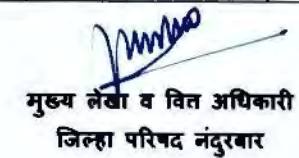 मुख्य लेखा व वित्त अधिकारी
जिल्हा परिषद नंदुरबार